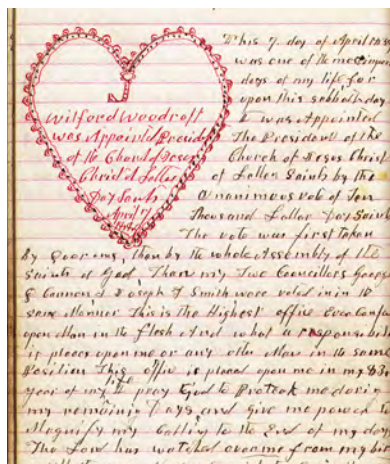 Wilford Woodruff
was Appointed Preside
of the Church of Jesus
Christ of Latter
Day Saints
April 7
This 7. day of April 18
was one of the most impo
days of my life for
upon this sabbath day
I was Appointed
The President of the
Church of Jesus Christ
of Latter Saints by the
Unanimous vote of Ten
Thousand Latter Day Saint
The vote was first taken
By Quorums, then by the whole Assembly of the
Saints of God, Then my Two Councillors George
Q Cannon & Joseph F Smith were voted in in the
same Manner This is the Highest office Ever Confer
upon Man in the flesh And what a responsibi
is placed upon me or any other Man in the same
Position This office is placed upon me in my 83
year of my life I pray God to Protect me during
my remaining Days and give me power t
Magnify my Calling to the End of my days
The Lord has watched over me from my bi